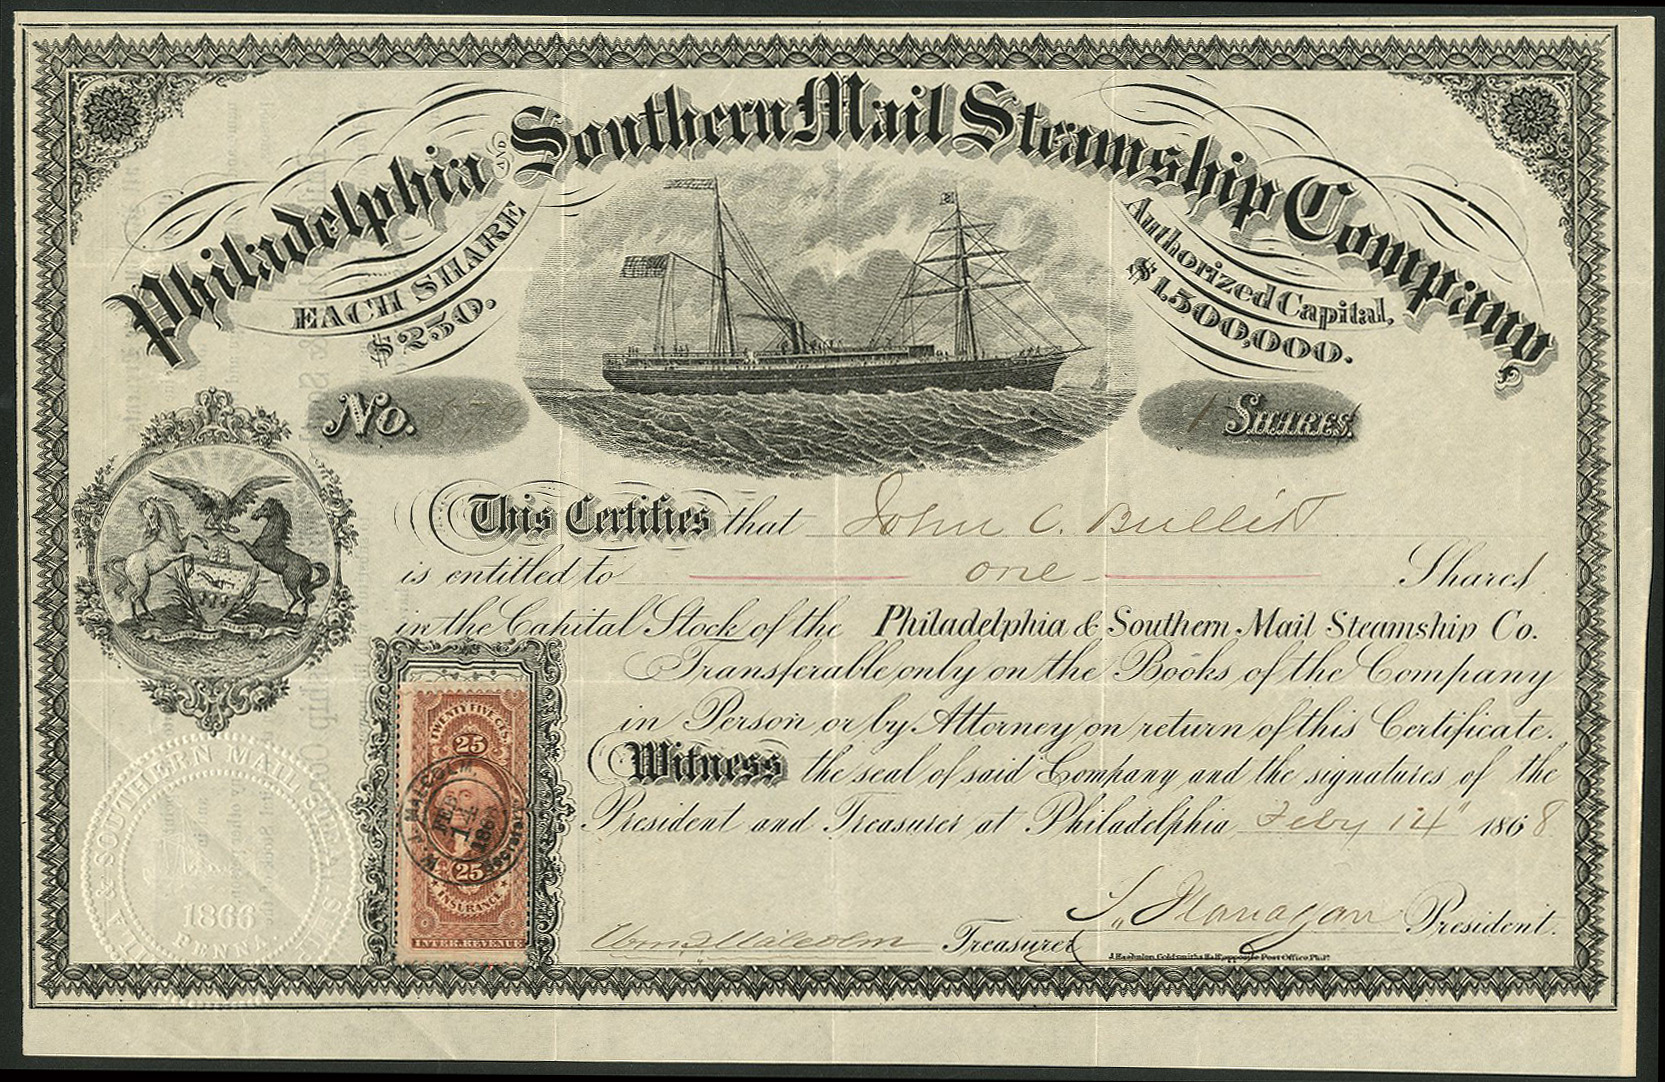 Philadelphia AND Southern Mail Steamship Company
EACH SHARE
$250.
Authorized Capital,
$1.500,000.
No.
1 SHARES.
This Certifies that John C. Bullitt
is entitled to one Shares
in the Capital Stock of the Philadelphia & Southern Mail Steamship Co.
Transferable only on the Books of the Company
in Person or by Attorney on return of this Certificate.
Witness the seal of said Company and the signatures of the
President and Treasurer at Philadelphia Feby 14" 1868
Flanagan President.
Wm Malcolm Treasurer
Goldsmiths Hall opposite Post Office Phila
TWENTY FIVE CTS.
25
W. MALCOLM
FEB
14
25
INSURANCE
INTER. REVENUE
A & SOUTHERN MAIL STEAM-SHIP
1866
PENNA.